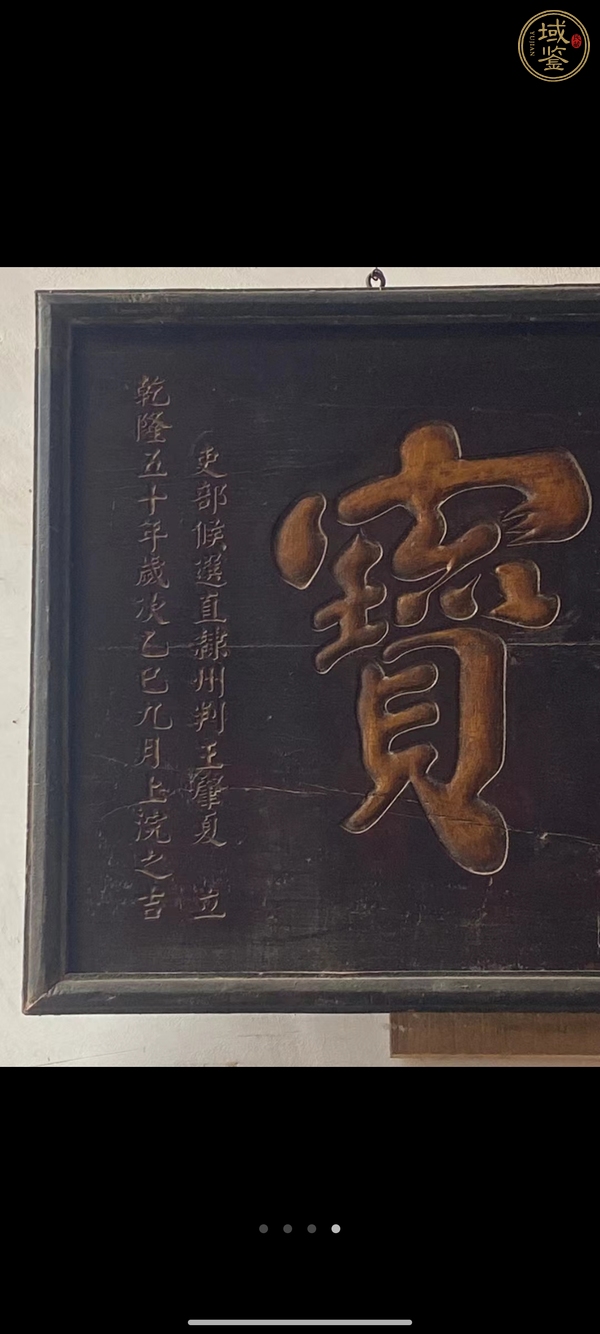 域鉴
YUJIAN
寶
吏部候選直隸州判王肇夏 立
乾隆五十年歲次乙巳九月上浣之吉